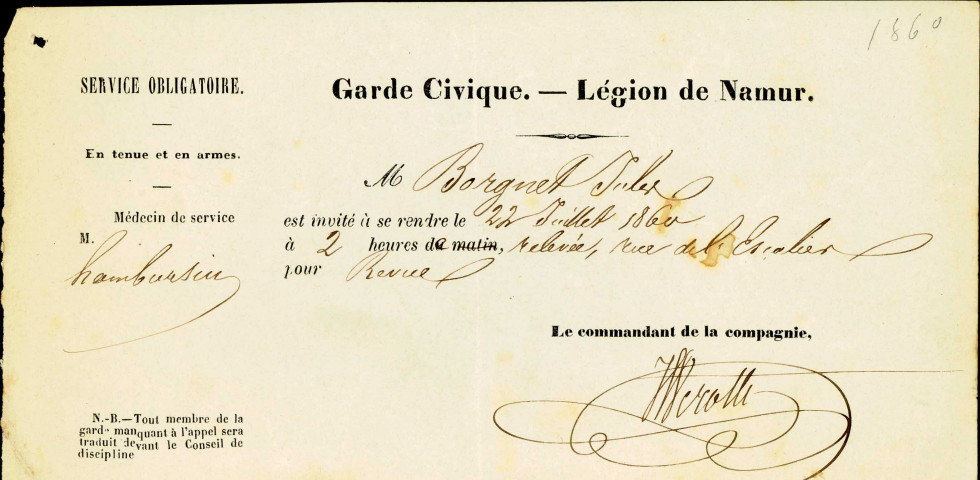 1860
SERVICE OBLIGATOIRE.
En tenue et en armes.
Médecin de service
M.
hambursin
N.-B.—Tout membre de la
garde manquant à l'appel sera
traduit devant le Conseil de
discipline
Garde Civique. — Légion de Namur.
M Borgnet Jules
est invité à se rendre le 22 Juillet 1860
à 2 heures de matin, relevée, rue de l'Escalier
pour Revue
Le commandant de la compagnie,